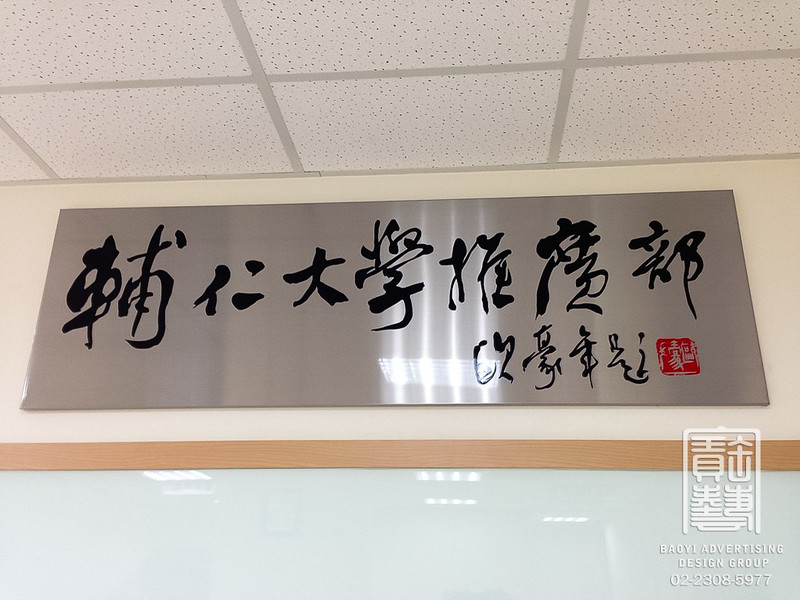 輔仁大學推廣部
歐豪年題
BAOYI ADVERTISING
DESIGN GROUP
02-2308-5977